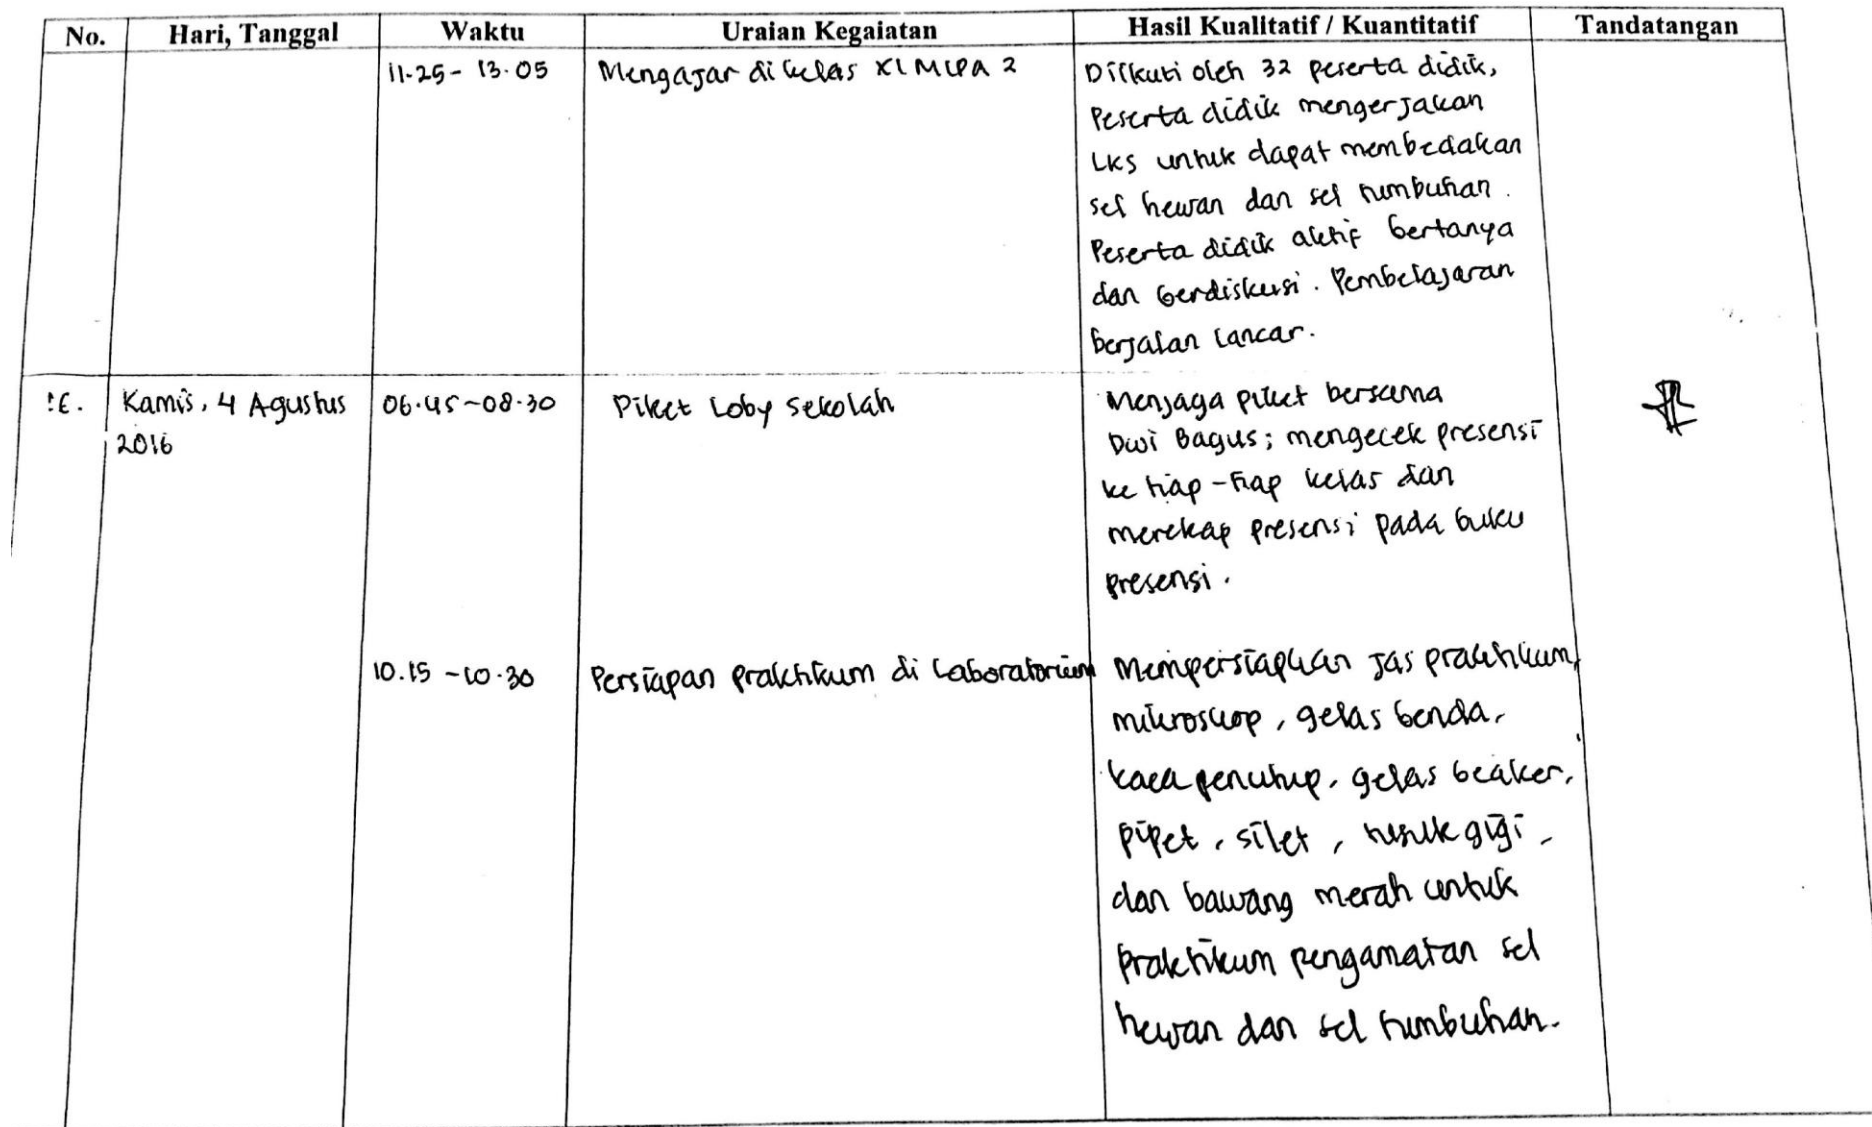 No. Hari, Tanggal Waktu Uraian Kegaiatan Hasil Kualitatif / Kuantitatif Tandatangan
11.25 - 13.05 Mengajar di kelas XI MIPA 2 Diikuti oleh 32 peserta didik,
Peserta didik mengerjakan
LKS untuk dapat membedakan
sel hewan dan sel tumbuhan.
Peserta didik aktif bertanya
dan berdiskusi. Pembelajaran
berjalan lancar.
Kamis, 4 Agustus 06.45-08.30 Piket Loby Sekolah Menjaga piket bersama
2016 Dwi Bagus; mengecek presensi
ke tiap-tiap kelas dan
merekap presensi pada buku
presensi.
10.15 - 10.30 Persiapan praktikum di Laboratorium Mempersiapkan jas praktikum,
mikroskop, gelas benda,
kaca penutup, gelas beaker,
pipet, silet, tusuk gigi,
dan bawang merah untuk
praktikum pengamatan sel
hewan dan sel tumbuhan.